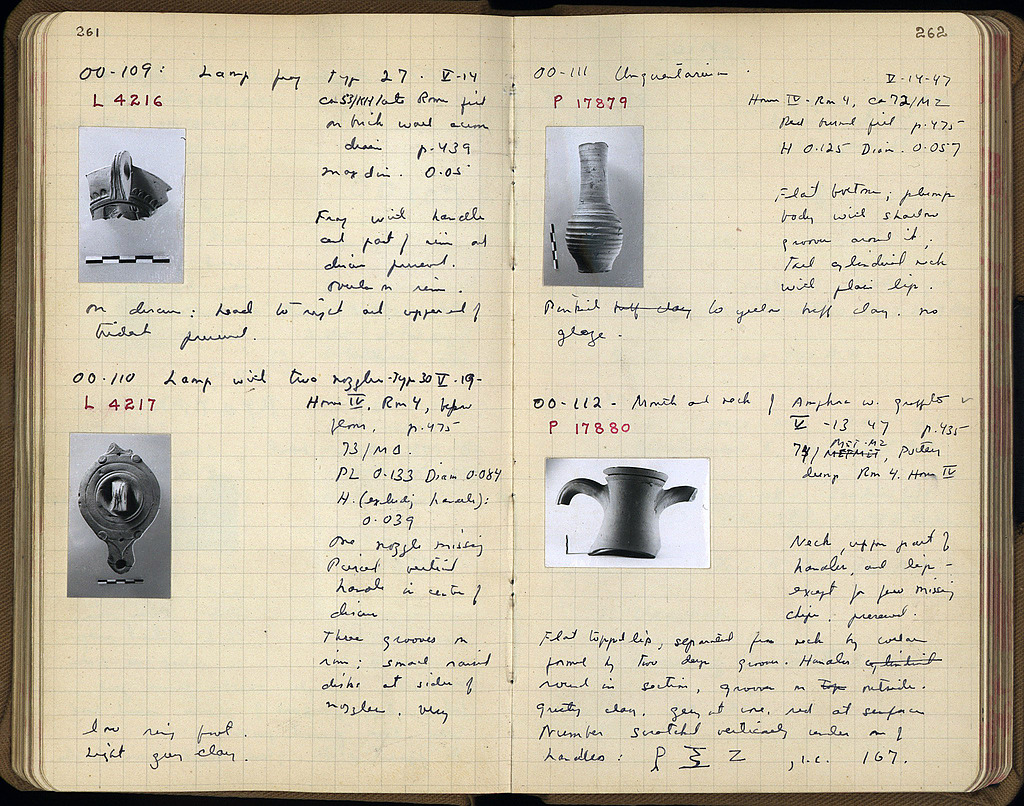 261
OO-109: Lamp frag Type 27. V-14
L 4216
ca 53/KH late Rom fill
on brick wall across
drain p. 439
max dim. 0.05
Frag with handle
and part of rim and
discus preserved.
ovules on rim.
on discus: head to right and upper end of
trident preserved.
OO-110 Lamp with two nozzles - Type 30 V-19-
L 4217
House IV, Rm 4, before
floor, p. 475
73/MΘ.
PL 0.133 Diam 0.084
H. (excluding handle):
0.039
One nozzle missing
Pierced vertical
handle in center of
discus
Three grooves on
rim; small raised
disks at sides of
nozzles. Very
low ring foot.
Light grey clay.
262
OO-111 Unguentarium.
V-14-47
P 17879
House IV - Rm 4, ca 72/MZ
Red burned fill p. 475
H 0.125 Diam. 0.057
Flat bottom; plump
body with shallow
grooves around it.
Tall cylindrical neck
with plain lip.
Pinkish buff clay to yellow buff clay. no
glaze.
OO-112 - Mouth and neck of Amphora w. graffito
P 17880
V -13 47 p. 435
74/ MΣT-MZ, Pottery
dump Rm 4. House IV
Neck, upper part of
handles, and lip -
except for few missing
chips. preserved.
Flat topped lip, separated from neck by collar
formed by two deep grooves. Handles cylindrical
round in section, groove on top outside.
Gritty clay, grey at core, red at surface
Number scratched vertically under one of
handles: Ρ Ξ Ζ , i.e. 167.